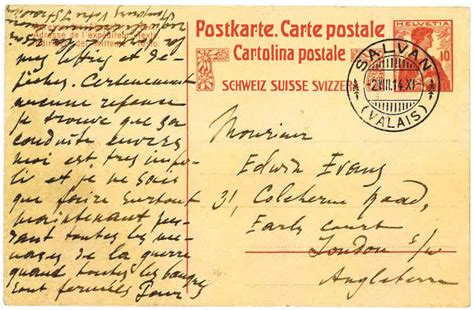 Postkarte. Carte postale
Cartolina postale
SCHWEIZ SUISSE SVIZZERA
HELVETIA
10
SALVAN
2.VIII.14.XI
(VALAIS)
Adresse de l'expéditeur. Texte.
mes lettres et dé-
pêches. Certainement
aucune réponse
je trouve que sa
conduite envers
moi est très impo-
li et je ne sais
que faire surtout
maintenant pen-
dant toutes les
de la guerre
quand toutes les banques
sont fermées. Pour
Monsieur
Edwin Evans
31, Coleherne Road,
Earls Court
London S/W
Angleterre